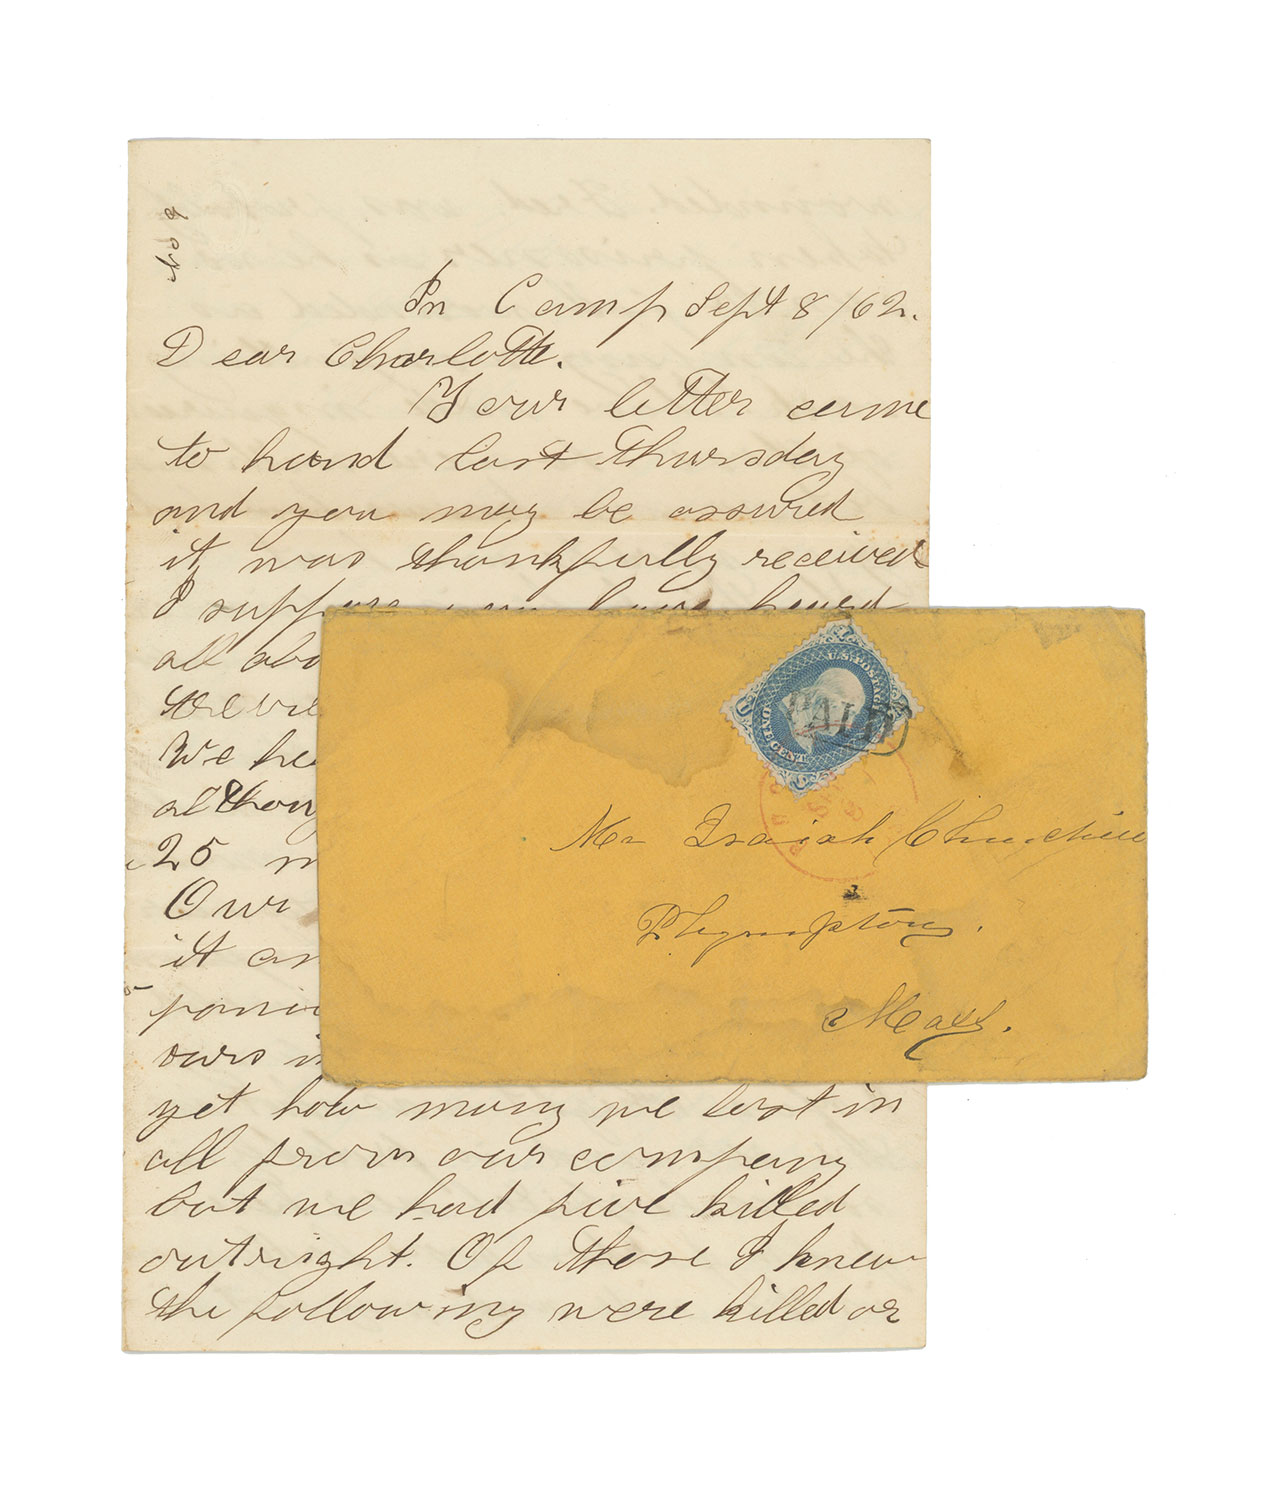 No 9
In Camp Sept 8/62.
Dear Charlotte.
Your letter came
to hand last Thursday
and you may be assured
it was thankfully received
I suppose you have heard
all abo
We hea
althoug
25 m
Our
it an
ours in
yet how many we lost in
all from our company
but we had five killed
outright. Of those I knew
the following were killed or
U.S. POSTAGE
ONE CENT
PAID
Mr Isaiah Churchill
Plympton.
Mass.